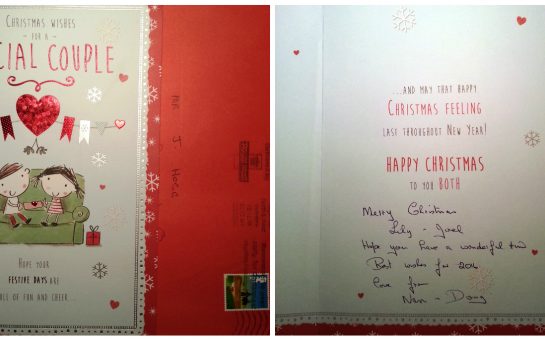 CHRISTMAS WISHES
FOR A
CIAL COUPLE
HOPE YOUR
FESTIVE DAYS ARE
LL OF FUN AND CHEER...
MR J. HOGG
...AND MAY THAT HAPPY
CHRISTMAS FEELING
LAST THROUGHOUT NEW YEAR!
HAPPY CHRISTMAS
TO YOU BOTH
Merry Christmas
Lily - Joel
Hope you have a wonderful
Best wishes for
love from
Nan - Doug